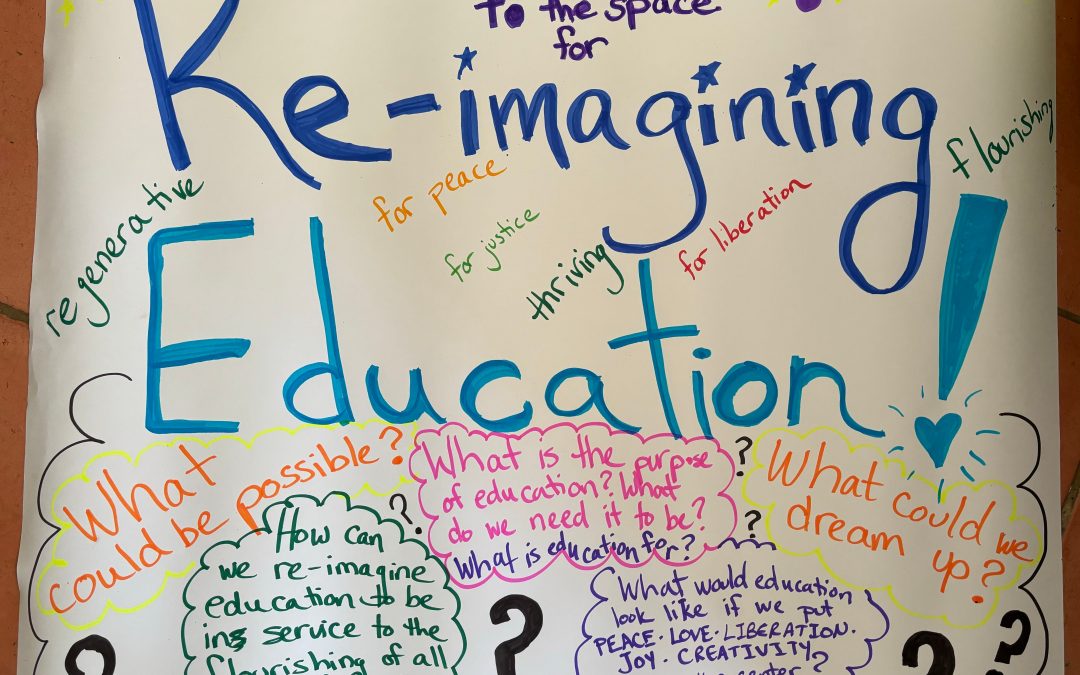 to the space
for
Re-imagining
flourishing
regenerative
for peace
for justice
thriving
for liberation
Education!
What
could be possible?
What is the purpose
of education? What
do we need it to be?
What is education for?
What could we
dream up?
How can
we re-imagine
education to be
in service to the
flourishing of all
What would education
look like if we put
PEACE · LOVE · LIBERATION ·
JOY · CREATIVITY
center?
? ? ? ? ? ? ?